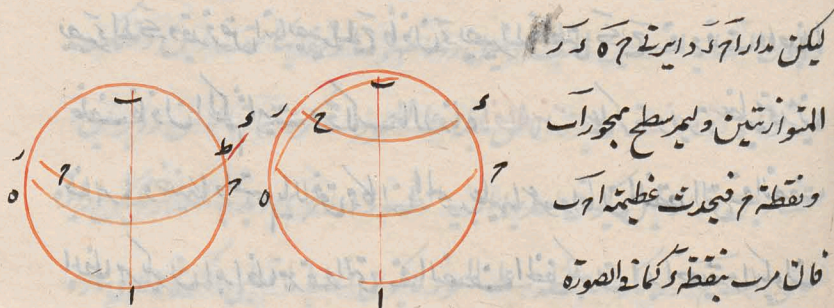 ليكن مدارا حَ ءَ دايرتي حَ ه ءَ رَ
المتوازيتين وليمر سطح بمحور اَب
ونقطة ح فيحدث عظيمة ا ح ب
فان مرت بنقطة ءَ كما في الصورة
ب
ء
ر
ط
ح
ح
ه
ا
ب
ء
ر
ح
ح
ه
ا